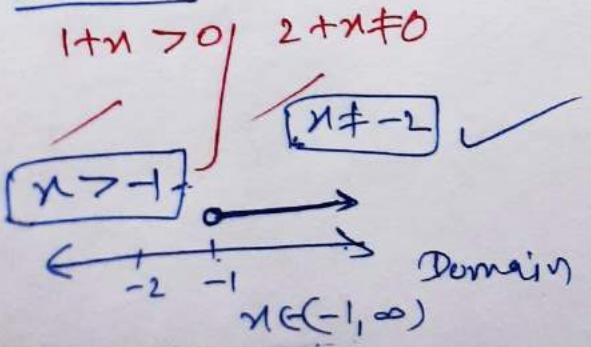 1+x > 0 2+x ≠ 0
x ≠ -2
x > -1
-2 -1 Domain
x ∈ (-1, ∞)